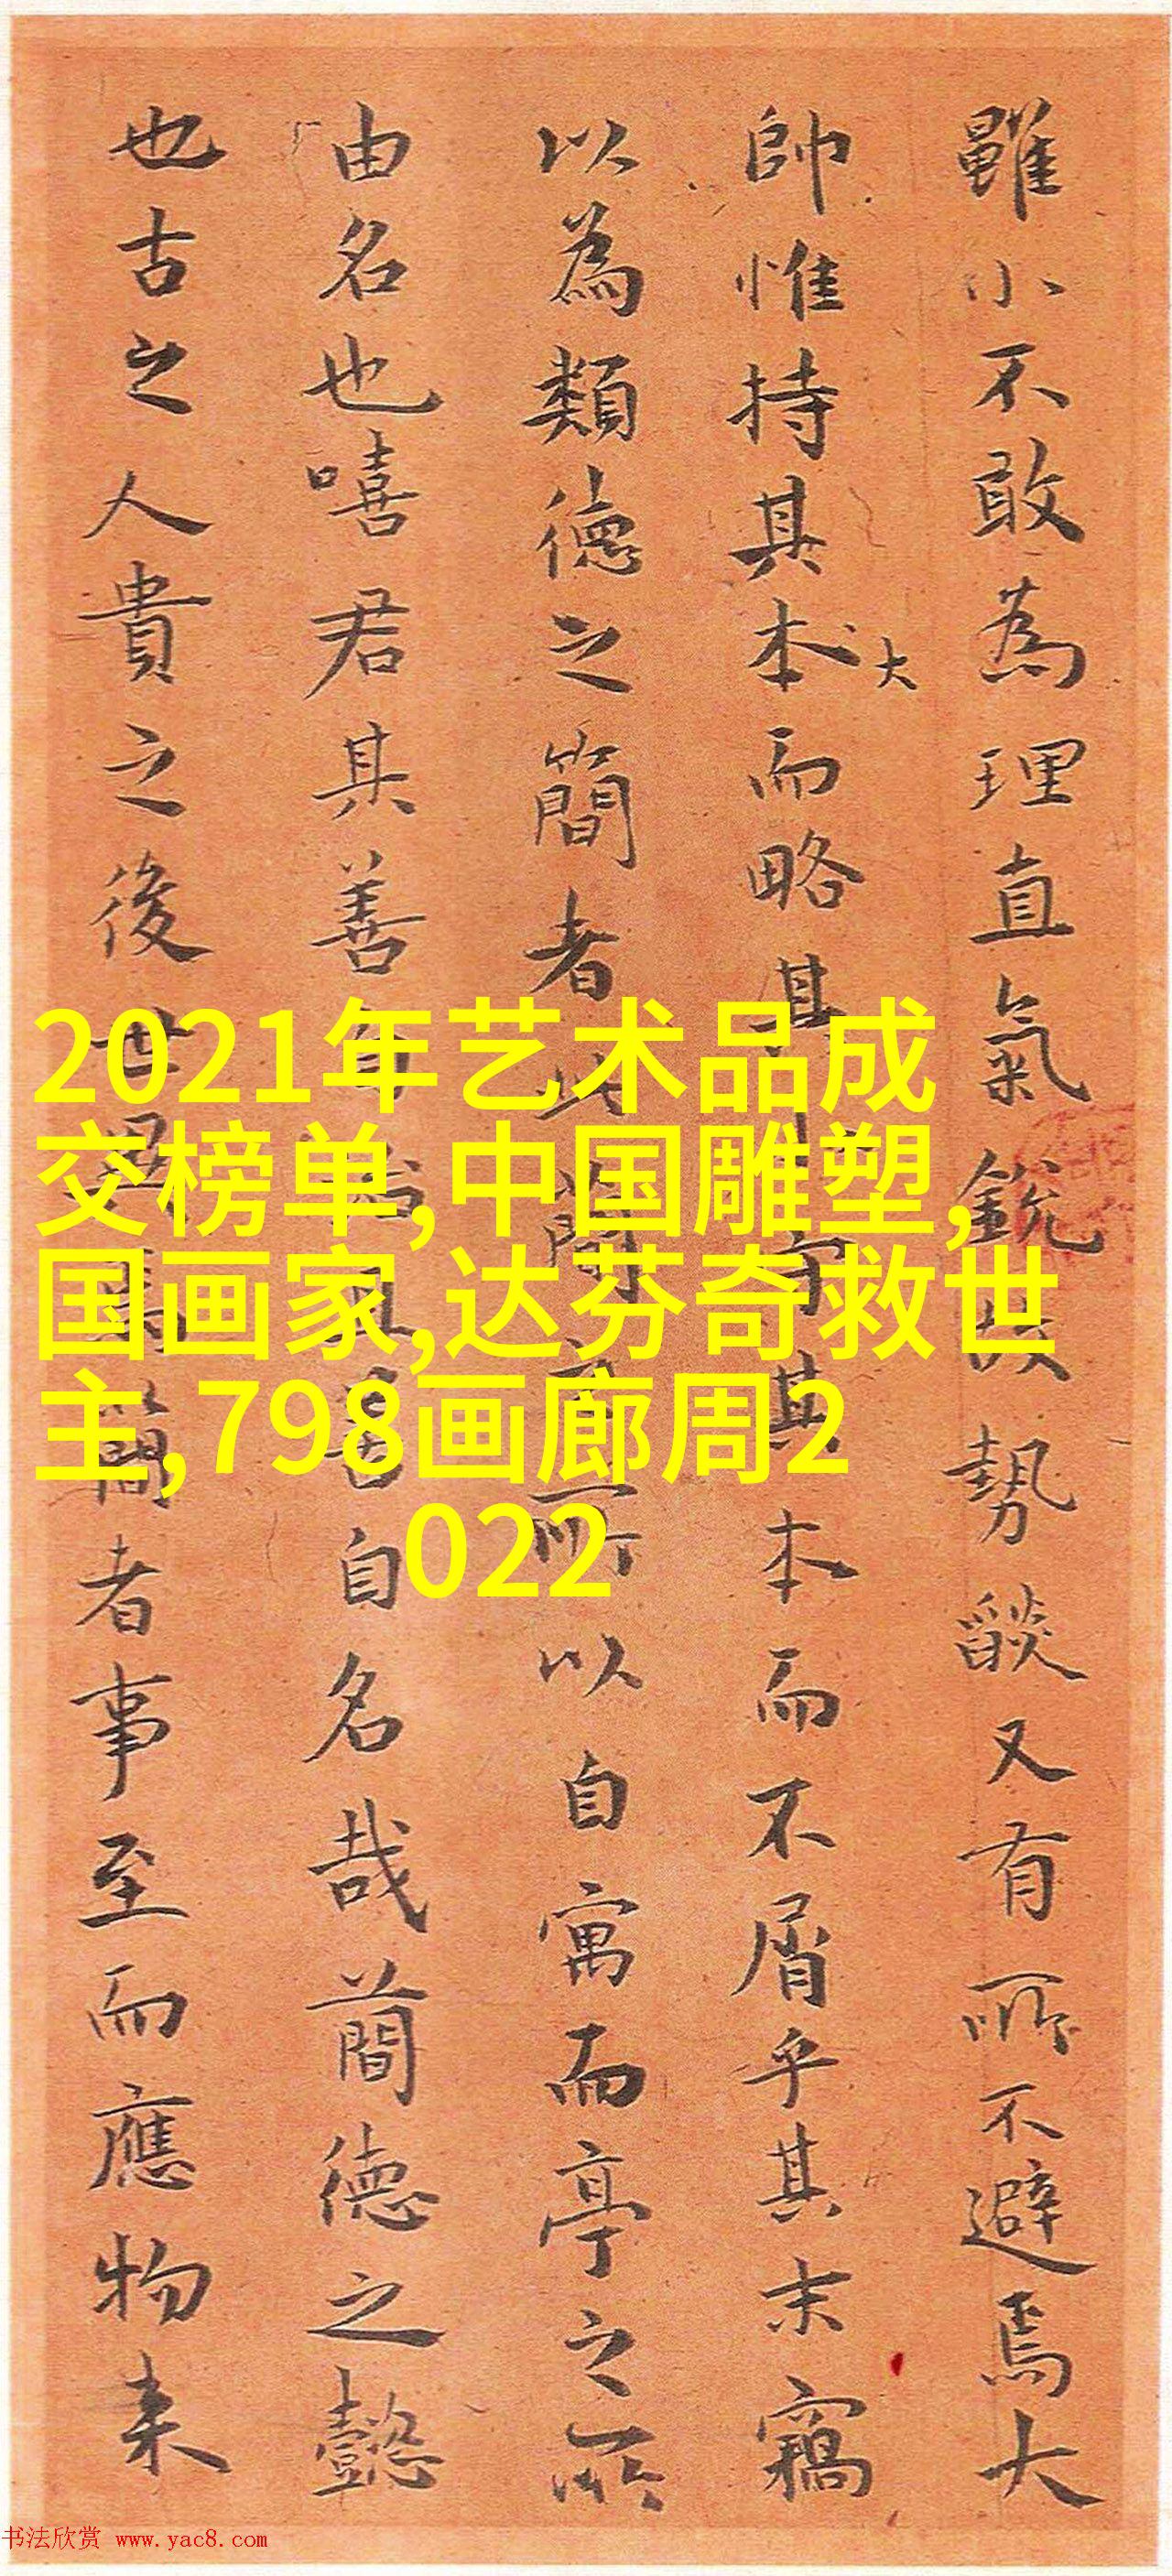 雖小不敢為理直氣銳勢燄又有所不避焉大
帥惟持其本大而略其其本而不屑乎其末竊
以為類德之簡者此蕳所以自寓而亭之所
由名也嘻君其善自自名哉蕳德之懿
也古之人貴之後世簡者事至而應物来
2021年艺术品成
交榜单,中国雕塑,
国画家,达芬奇救世
主,798画廊周2
022
书法欣赏 www.yac8.com